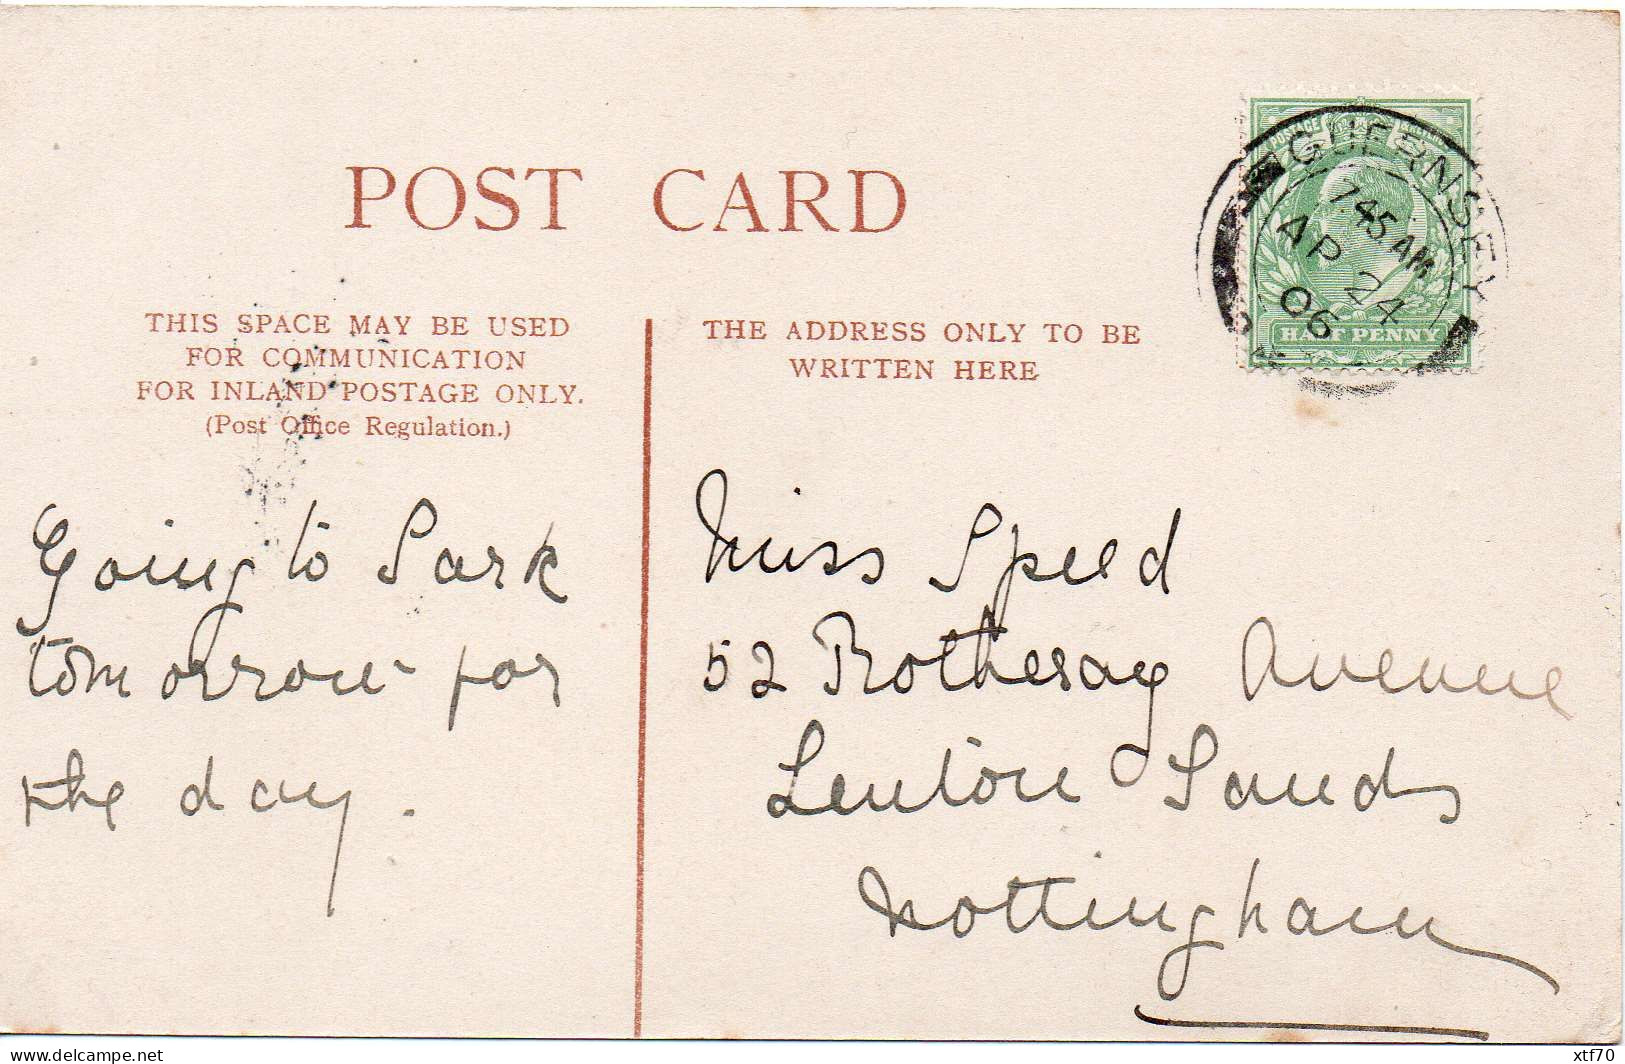 POST CARD
POSTAGE
GUERNSEY
7 45 AM
AP 24
06
HALF PENNY
THIS SPACE MAY BE USED
FOR COMMUNICATION
FOR INLAND POSTAGE ONLY.
(Post Office Regulation.)
THE ADDRESS ONLY TO BE
WRITTEN HERE
Going to Sark
tomorrow for
the day.
Miss Speed
52 Rothesay Avenue
Lenton Sands
Nottingham
xtf70